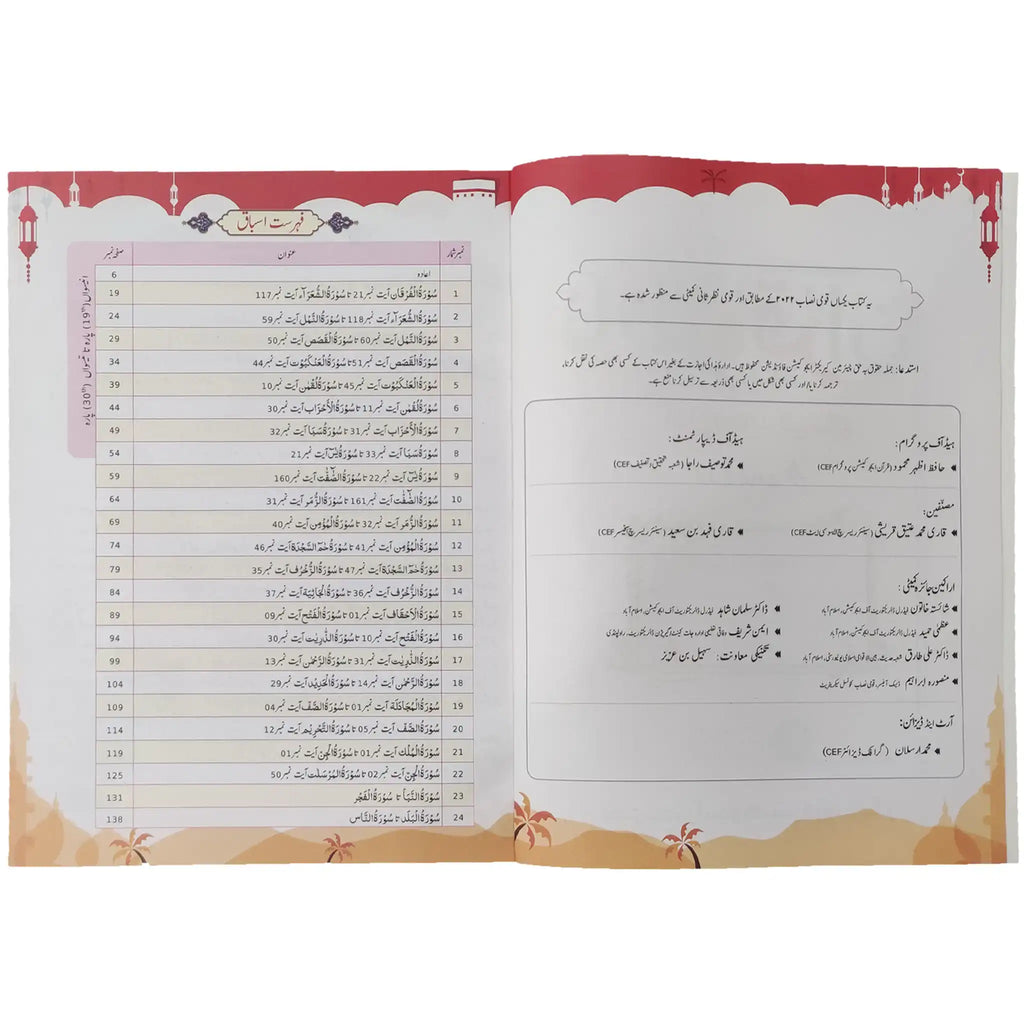 یہ کتاب یکساں قومی نصاب ۲۰۲۲ کے مطابق اور قومی نظر ثانی کمیٹی سے منظور شدہ ہے۔
استدعا: جملہ حقوق بہ حق چیئر مین کیریکٹر ایجوکیشن فاؤنڈیشن محفوظ ہیں۔ ادارۂ ہذا کی اجازت کے بغیر اس کتاب کے کسی بھی حصہ کی نقل کرنا،
ترجمہ کرنا یا اور کسی بھی شکل میں یا کسی بھی ذریعہ سے ترسیل کرنا منع ہے۔
ہیڈ آف پروگرام:
حافظ اظہر محمود (قرآن ایجوکیشن پروگرام CEF)
ہیڈ آف ڈیپارٹمنٹ:
محمد توصیف راجا (شعبہ تحقیق و تصنیف CEF)
مصنّفین:
قاری محمد عتیق قریشی (سینئر ریسرچ ایسوسی ایٹ CEF) قاری فہد بن سعید (سینئر ریسرچ آفیسر CEF)
اراکین جائزہ کمیٹی:
شائستہ خاتون فیڈرل ڈائریکٹوریٹ آف ایجوکیشن، اسلام آباد ڈاکٹر سلمان شاہد فیڈرل ڈائریکٹوریٹ آف ایجوکیشن، اسلام آباد
عظمیٰ حمید فیڈرل ڈائریکٹوریٹ آف ایجوکیشن، اسلام آباد ایمن شریف وفاقی تعلیمی ادارہ جات کینٹ/گیریژن ڈائریکٹوریٹ، راولپنڈی
ڈاکٹر علی طارق شعبہ حدیث، بین الاقوامی اسلامی یونیورسٹی، اسلام آباد تکنیکی معاونت: سہیل بن عزیز
منصورہ ابراہیم ڈیسک آفیسر، قومی نصاب کونسل سیکریٹریٹ
آرٹ اینڈ ڈیزائن:
محمد ارسلان (گرافک ڈیزائنر CEF)
فہرست اسباق
نمبر شمار عنوان صفحہ نمبر
انیسواں (19th) پارہ تا تیسواں (30th) پارہ
اعادہ 6
1 سُوْرَةُ الْفُرْقَان آیت نمبر 21 تا سُوْرَةُ الشُّعَرَآء آیت نمبر 117 19
2 سُوْرَةُ الشُّعَرَآء آیت نمبر 118 تا سُوْرَةُ النَّمْل آیت نمبر 59 24
3 سُوْرَةُ النَّمْل آیت نمبر 60 تا سُوْرَةُ الْقَصَص آیت نمبر 50 29
4 سُوْرَةُ الْقَصَص آیت نمبر 51 تا سُوْرَةُ الْعَنْكَبُوْت آیت نمبر 44 34
5 سُوْرَةُ الْعَنْكَبُوْت آیت نمبر 45 تا سُوْرَةُ لُقْمٰن آیت نمبر 10 39
6 سُوْرَةُ لُقْمٰن آیت نمبر 11 تا سُوْرَةُ الْأَحْزَاب آیت نمبر 30 44
7 سُوْرَةُ الْأَحْزَاب آیت نمبر 31 تا سُوْرَةُ سَبَا آیت نمبر 32 49
8 سُوْرَةُ سَبَا آیت نمبر 33 تا سُوْرَةُ يٰسٓ آیت نمبر 21 54
9 سُوْرَةُ يٰسٓ آیت نمبر 22 تا سُوْرَةُ الصّٰٓفّٰت آیت نمبر 160 59
10 سُوْرَةُ الصّٰٓفّٰت آیت نمبر 161 تا سُوْرَةُ الزُّمَر آیت نمبر 31 64
11 سُوْرَةُ الزُّمَر آیت نمبر 32 تا سُوْرَةُ الْمُؤْمِن آیت نمبر 40 69
12 سُوْرَةُ الْمُؤْمِن آیت نمبر 41 تا سُوْرَةُ حٰمٓ السَّجْدَة آیت نمبر 46 74
13 سُوْرَةُ حٰمٓ السَّجْدَة آیت نمبر 47 تا سُوْرَةُ الزُّخْرُف آیت نمبر 35 79
14 سُوْرَةُ الزُّخْرُف آیت نمبر 36 تا سُوْرَةُ الْجَاثِيَة آیت نمبر 37 84
15 سُوْرَةُ الْأَحْقَاف آیت نمبر 01 تا سُوْرَةُ الْفَتْح آیت نمبر 09 89
16 سُوْرَةُ الْفَتْح آیت نمبر 10 تا سُوْرَةُ الذّٰرِيٰت آیت نمبر 30 94
17 سُوْرَةُ الذّٰرِيٰت آیت نمبر 31 تا سُوْرَةُ الرَّحْمٰن آیت نمبر 13 99
18 سُوْرَةُ الرَّحْمٰن آیت نمبر 14 تا سُوْرَةُ الْحَدِيْد آیت نمبر 29 104
19 سُوْرَةُ الْمُجَادَلَة آیت نمبر 01 تا سُوْرَةُ الصَّف آیت نمبر 04 109
20 سُوْرَةُ الصَّف آیت نمبر 05 تا سُوْرَةُ التَّحْرِيْم آیت نمبر 12 114
21 سُوْرَةُ الْمُلْك آیت نمبر 01 تا سُوْرَةُ الْجِنّ آیت نمبر 01 119
22 سُوْرَةُ الْجِنّ آیت نمبر 02 تا سُوْرَةُ الْمُرْسَلٰت آیت نمبر 50 125
23 سُوْرَةُ النَّبَاْ تا سُوْرَةُ الْفَجْر 131
24 سُوْرَةُ الْبَلَد تا سُوْرَةُ النَّاس 138